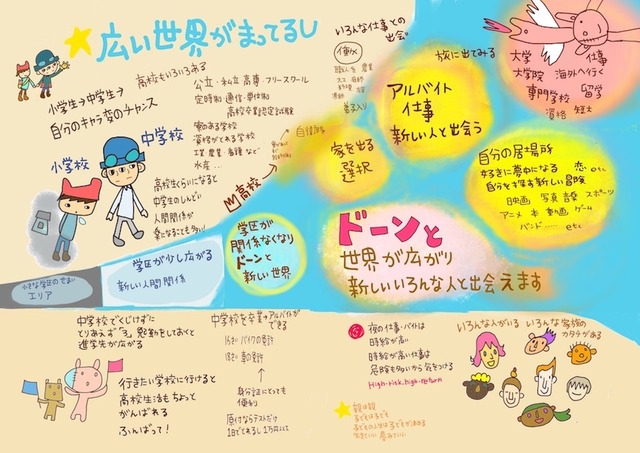 広い世界がまってるし
小学生⇒中学生⇒
自分のキャラ変のチャンス
高校もいろいろある
公立・私立 高専・フリースクール
定時制 通信・単位制
高校卒業認定試験
資格がとれる学校
工業 農業 看護 など
水産…
小学校
中学校
高校生くらいになると
中学生のしんどい
人間関係が
楽になることも多い
高校
いろんな仕事との
出会い
弟子入り
旅に出てみる
アルバイト
仕事
新しい人と出会う
家を出る
選択
大学
大学院
専門学校
資格
仕事
海外へ行く
留学
自分の居場所
好きに夢中になる 恋 etc
自分を探す新しい冒険
映画 写真 音楽 スポーツ
アニメ 本 動画 ゲーム
バンド…… etc
エリア
学区が少し広がる
新しい人間関係
学区が
関係なくなり
ドーンと
新しい世界
ドーンと
世界が広がり
新しいいろんな人と出会えます
中学校でくじけずに
とりあえず「3」
進学先が広がる
行きたい学校に行けると
高校生活もちょっと
がんばれる
ふんばって!
中学校を卒業⇒アルバイトが
できる
16才 バイクの免許
18才 車の免許
身分証にとっても
便利
原付ならテストだけ
1日でとれるし1万円以下
夜の仕事・バイトは
時給が高い
時給が高い仕事は
危険も多いから気をつける
High-risk, high-return
いろんな人がいる
いろんな家族の
カタチがある
親は親
子どもは子ども